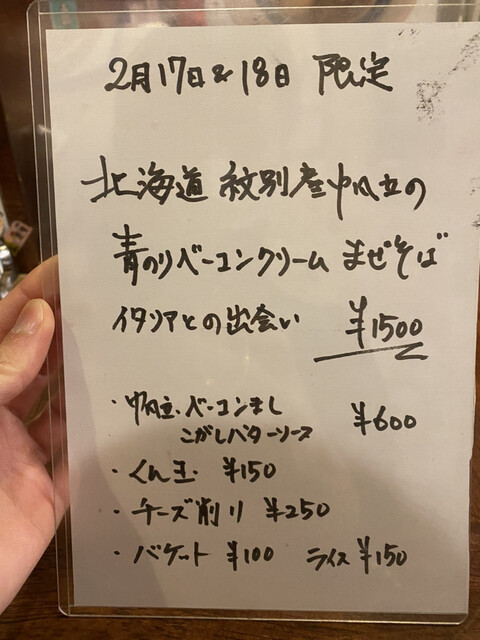 2月17日&18日 限定
北海道 紋別産帆立の
青のりベーコンクリーム まぜそば
イタリアとの出会い ¥1500
・帆立、ベーコンまし
こがしバターソース ¥600
・くん玉 ¥150
・チーズ削り ¥250
・バケット ¥100 ライス ¥150